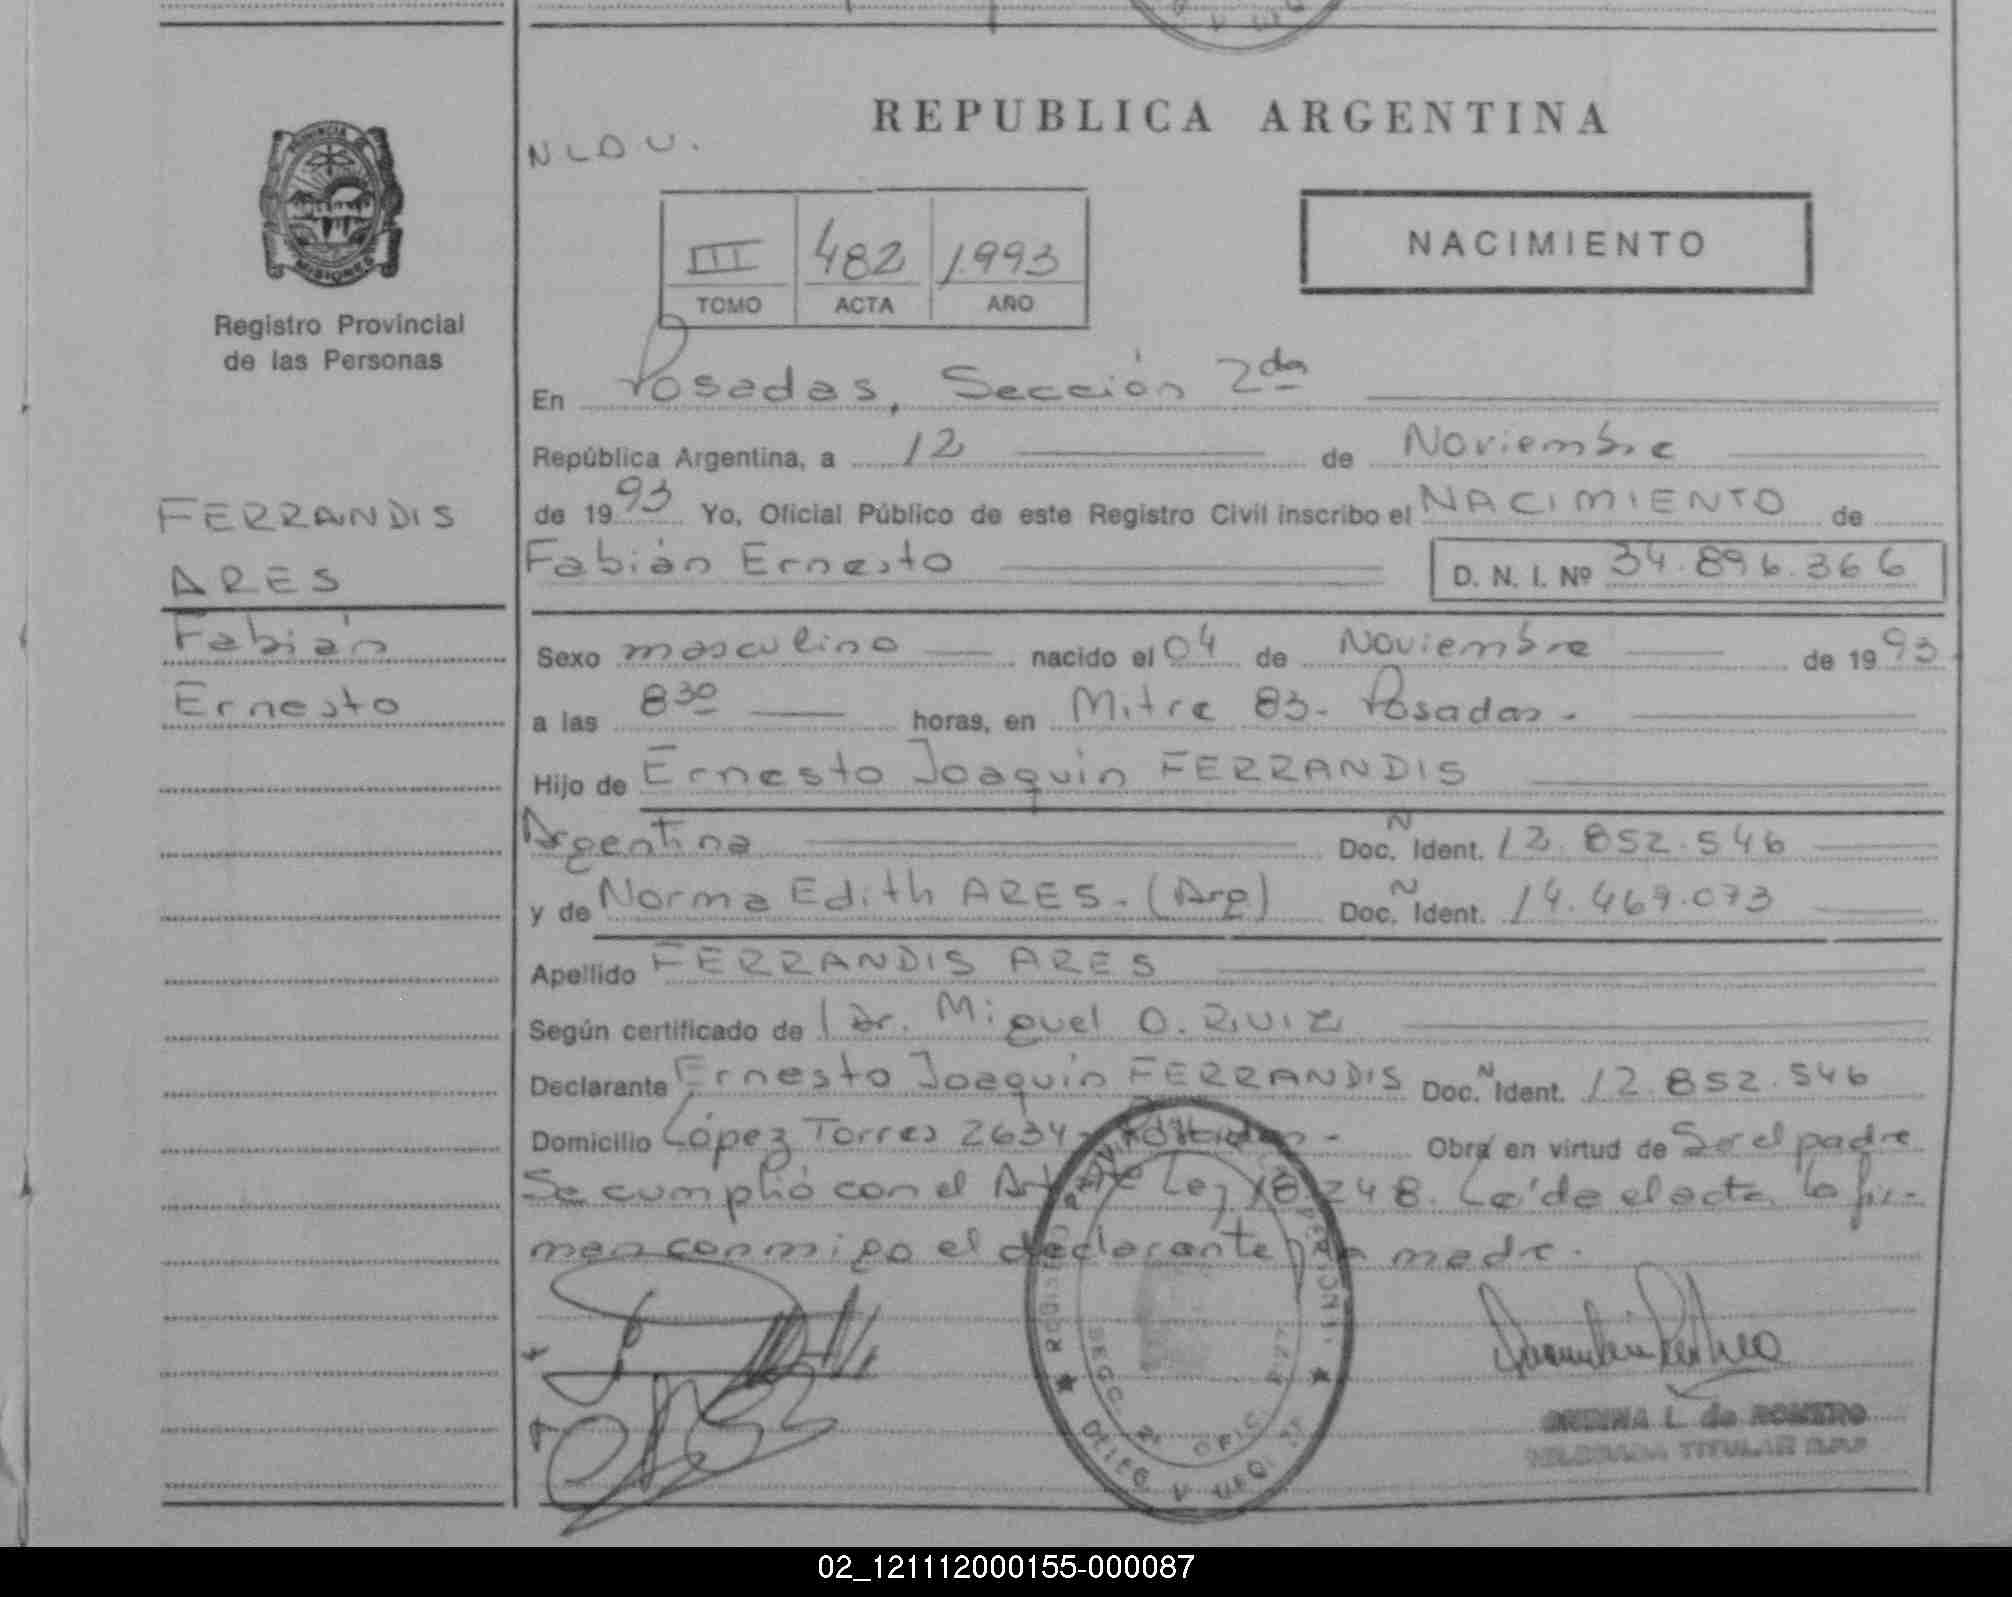 REPUBLICA ARGENTINA
PROVINCIA
MISIONES
Registro Provincial
de las Personas
N L D U.
III 482 1.993
TOMO ACTA AÑO
NACIMIENTO
En Posadas, Sección 2da
República Argentina, a 12 de Noviembre
de 1993 Yo, Oficial Público de este Registro Civil inscribo el NACIMIENTO de
Fabián Ernesto D. N. I. Nº 34.896.366
FERRANDIS
ARES
Fabián
Ernesto
Sexo masculino nacido el 04 de Noviembre de 1993
a las 8 30 horas, en Mitre 83- Posadas-
Hijo de Ernesto Joaquin FERRANDIS
Argentina Doc. Ñ Ident. 12.852.546
y de Norma Edith ARES-(Arg) Doc. Ñ Ident. 14.469.073
Apellido FERRANDIS ARES
Según certificado de Dr. Miguel O. RUIZ
Declarante Ernesto Joaquin FERRANDIS Doc. Ñ Ident. 12.852.546
Domicilio López Torres 2634- Posadas- Obra en virtud de Ser el padre
Se cumplió con el Art Ley 18.248. Leída el acta la fir-
man conmigo el declarante y la madre.
SECC. 2ª OFIC.
L. de ROMERO
DELEGADA TITULAR R.P.P
02_121112000155-000087